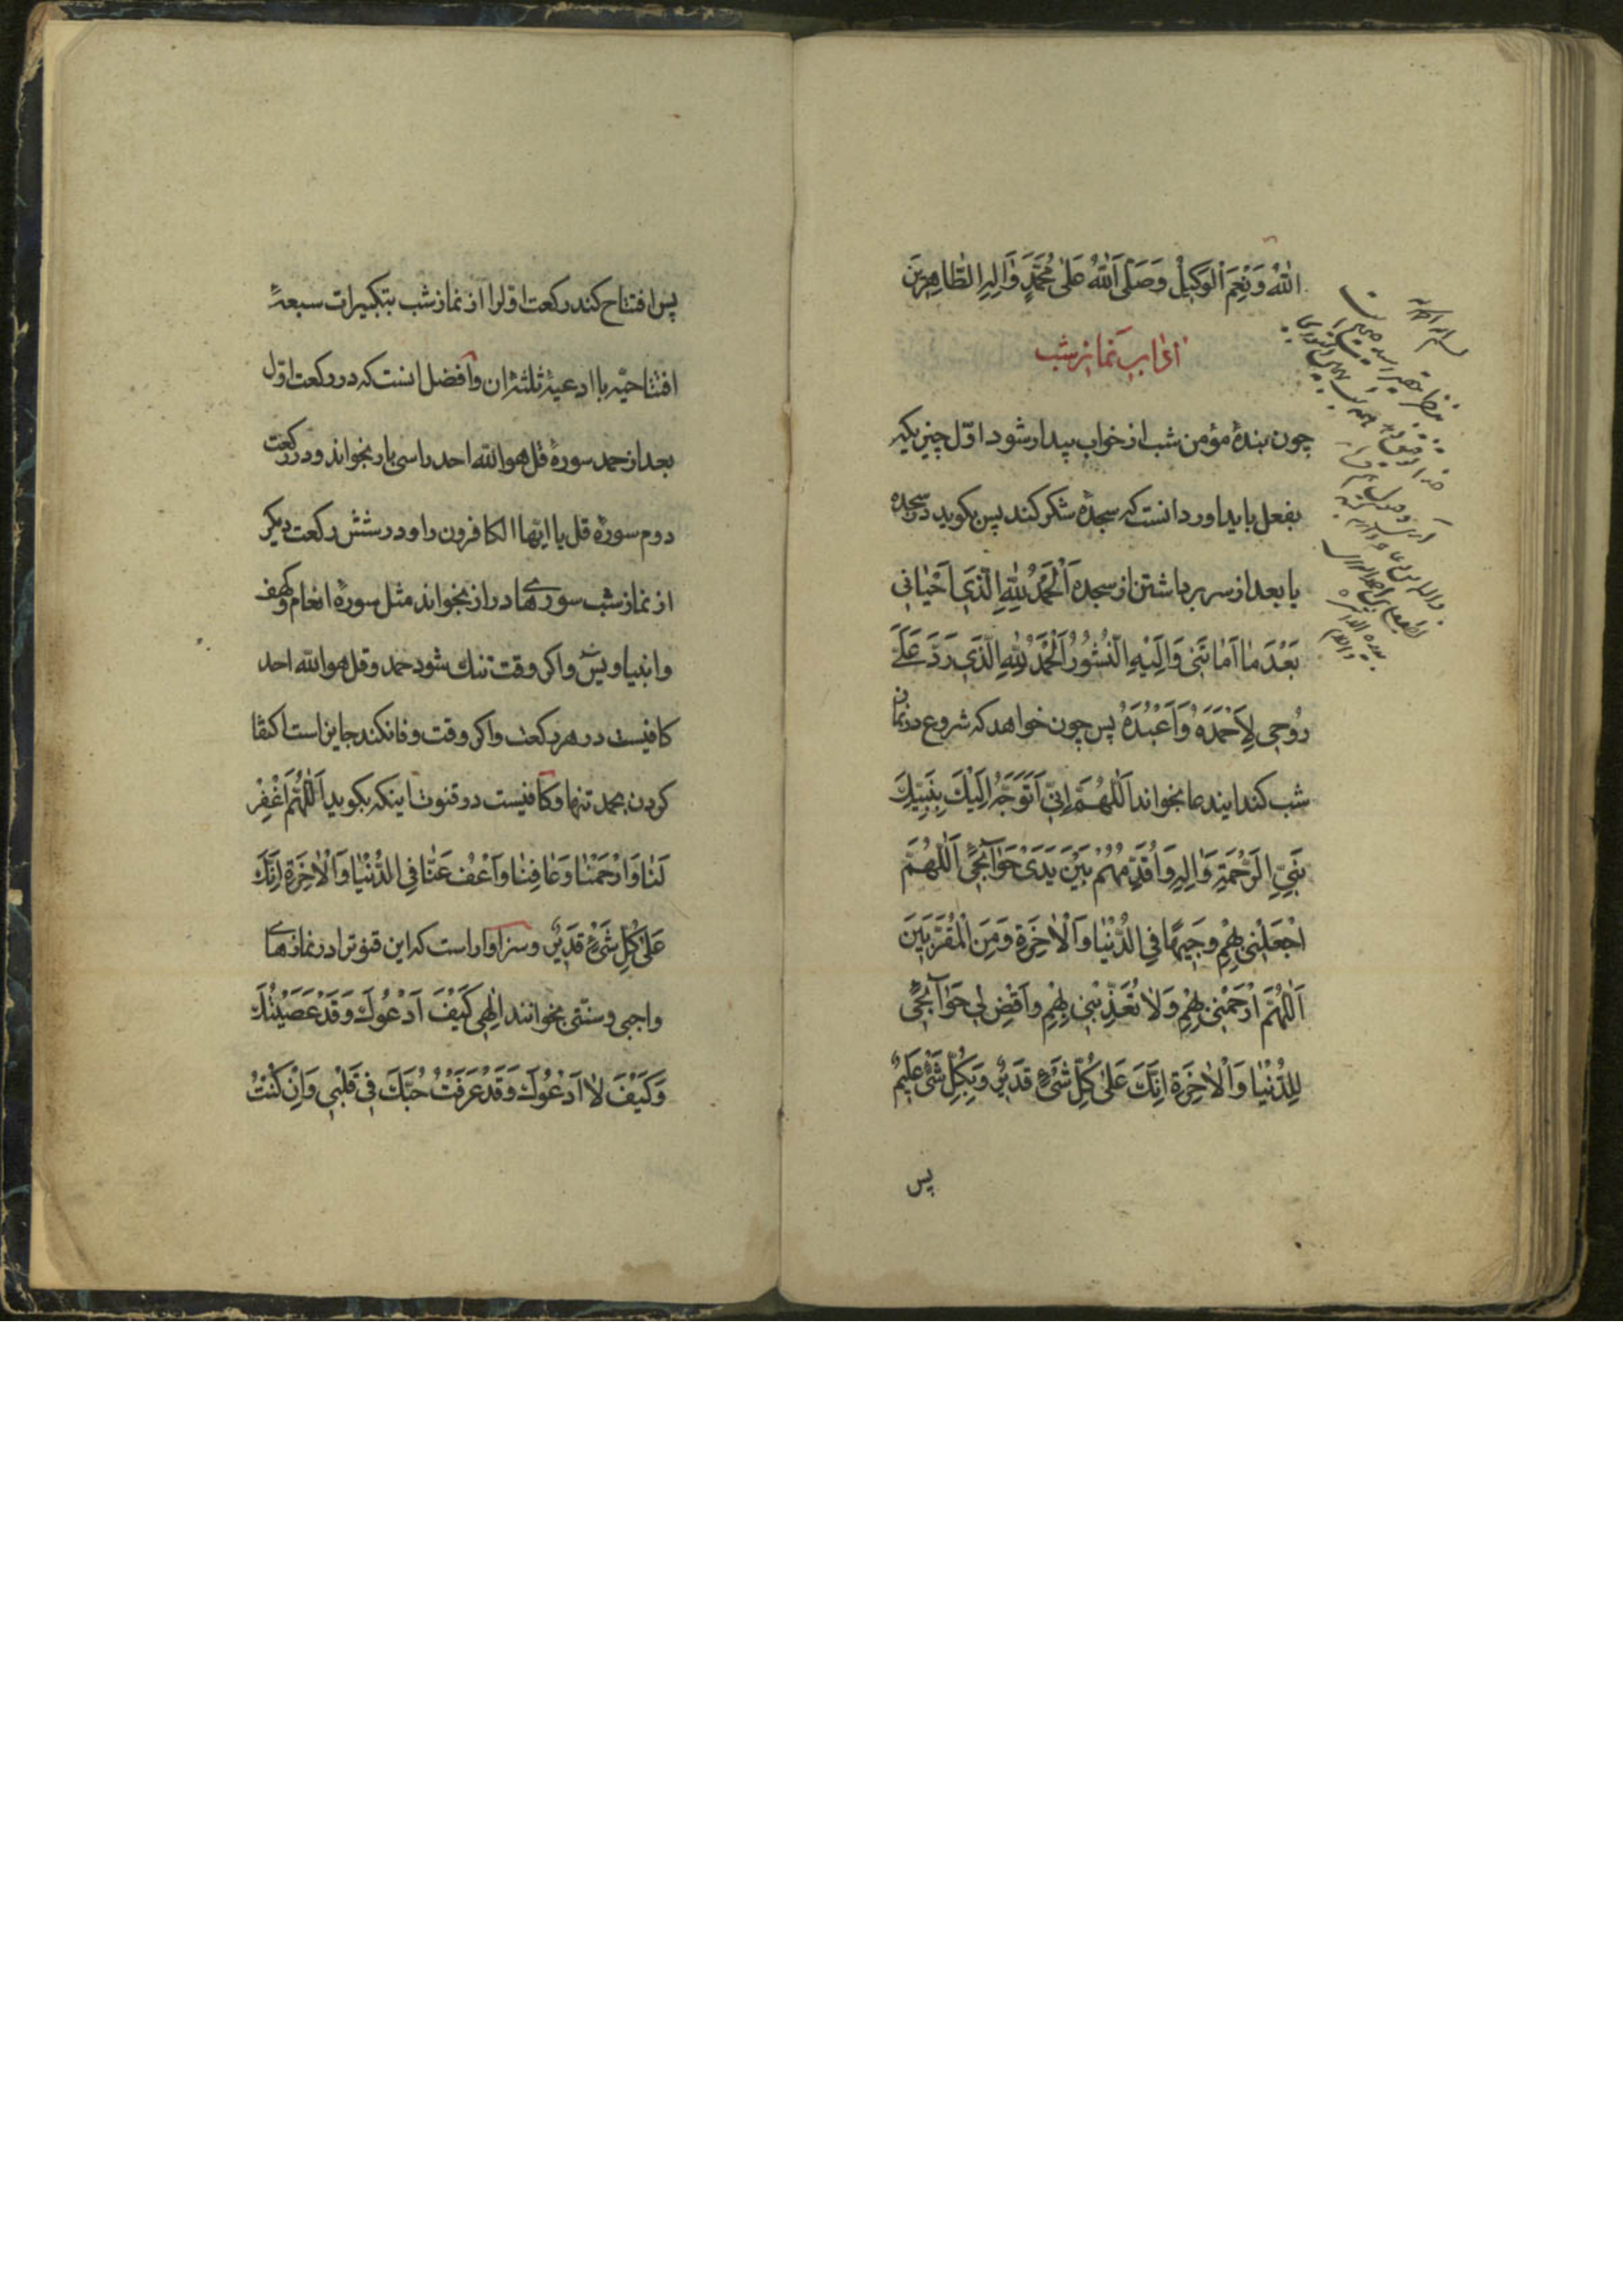 اللّٰهُ وَنِعْمَ الْوَكِيلُ وَصَلَّى اللّٰهُ عَلىٰ مُحَمَّدٍ وَاٰلِهِ الطَّاهِرِينَ
اداب نماز شب
چون بندهٔ مؤمن شب از خواب بيدار شود اوّل چيزيكه
بفعل بايد اورد انست كه سجدهٔ شكر كند پس بكويد در سجده
يا بعد از سر برداشتن از سجده اَلْحَمْدُ لِلّٰهِ الَّذِى اَحْيَانِى
بَعْدَ مَا اَمَاتَنِى وَاِلَيْهِ النُّشُورُ اَلْحَمْدُ لِلّٰهِ الَّذِى رَدَّ عَلَىَّ
رُوحِى لِاَحْمَدَهُ وَاَعْبُدَهُ پس چون خواهد كه شروع در نماز
شب كند ايندعا بخواند اَللّٰهُمَّ اِنِّى اَتَوَجَّهُ اِلَيْكَ بِنَبِيِّكَ
نَبِىِّ الرَّحْمَةِ وَاٰلِهِ وَاُقَدِّمُهُمْ بَيْنَ يَدَىْ حَوَآئِجِى اَللّٰهُمَّ
اجْعَلْنِى بِهِمْ وَجِيهًا فِى الدُّنْيَا وَالْاٰخِرَةِ وَمِنَ الْمُقَرَّبِينَ
اَللّٰهُمَّ ارْحَمْنِى بِهِمْ وَلَا تُعَذِّبْنِى بِهِمْ وَاقْضِ لِى حَوَآئِجِى
لِلدُّنْيَا وَالْاٰخِرَةِ اِنَّكَ عَلىٰ كُلِّ شَىْءٍ قَدِيرٌ وَبِكُلِّ شَىْءٍ عَلِيمٌ
پس
پس افتتاح كند ركعت اوّل را از نماز شب بتكبيرات سبعهٔ
افتتاحيّه با ادعيهٔ ثلثهٔ ان وافضل انست كه در ركعت اوّل
بعد از حمد سورهٔ قل هو الله احد را سى بار بخواند ودر ركعت
دوم سورهٔ قل يا ايها الكافرون را ودر شش ركعت ديكر
از نماز شب سورهاى دراز بخواند مثل سورهٔ انعام وكهف
وانبيا ويس واكر وقت تنك شود حمد وقل هو الله احد
كافيست در هر ركعت واكر وقت وفا نكند جايز است اكتفا
كردن بحمد تنها وكافيست در قنوت اينكه بكويد اَللّٰهُمَّ اغْفِرْ
لَنَا وَارْحَمْنَا وَعَافِنَا وَاعْفُ عَنَّا فِى الدُّنْيَا وَالْاٰخِرَةِ اِنَّكَ
عَلىٰ كُلِّ شَىْءٍ قَدِيرٌ وسزاوار است كه اين قنوترا در نمازهاى
واجبى وسنّتى بخوانند اِلٰهِى كَيْفَ اَدْعُوكَ وَقَدْ عَصَيْتُكَ
وَكَيْفَ لَا اَدْعُوكَ وَقَدْ عَرَفْتُ حُبَّكَ فِى قَلْبِى وَاِنْ كُنْتُ